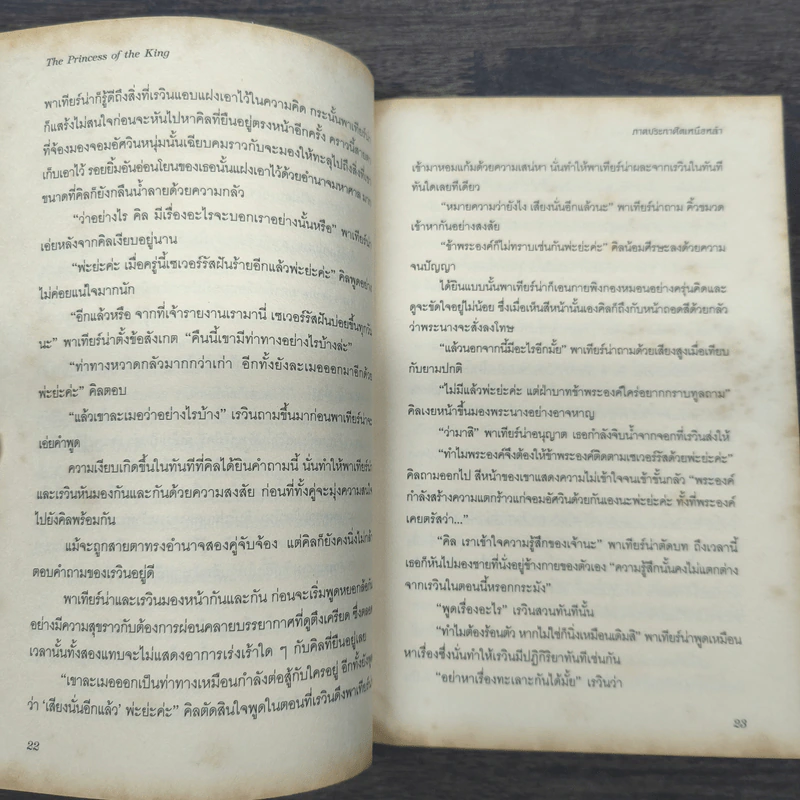 The Princess of the King
พาเทียร์น่าก็รู้ดีถึงสิ่งที่เรวินแอบแฝงเอาไว้ในความคิด กระนั้นพาเทียร์น่า
ก็แสร้งไม่สนใจก่อนจะหันไปหาคิลที่ยืนอยู่ตรงหน้าอีกครั้ง คราวนี้สายตา
ที่จ้องมองจอมอัศวินหนุ่มนั้นเฉียบคมราวกับจะมองให้ทะลุไปถึงสิ่งที่
เก็บเอาไว้ รอยยิ้มอันอ่อนโยนของเธอนั้นแฝงเอาไว้ด้วยอำนาจมหาศาล
ขนาดที่คิลก็ยังกลืนน้ำลายด้วยความกลัว
“ว่าอย่างไร คิล มีเรื่องอะไรจะบอกเราอย่างนั้นหรือ” พาเทียร์น่า
เอ่ยหลังจากคิลเงียบอยู่นาน
“พ่ะย่ะค่ะ เมื่อครู่นี้เซเวอร์รัสฝันร้ายอีกแล้วพ่ะย่ะค่ะ” คิลพูดอย่าง
ไม่ค่อยแน่ใจมากนัก
“อีกแล้วหรือ จากที่เจ้ารายงานเรามานี่ เซเวอร์รัสฝันบ่อยขึ้นทุกวัน
นะ” พาเทียร์น่าตั้งข้อสังเกต “คืนนี้เขามีท่าทางอย่างไรบ้างล่ะ”
“ท่าทางหวาดกลัวมากกว่าเก่า อีกทั้งยังละเมอออกมาอีกด้วย
พ่ะย่ะค่ะ” คิลตอบ
“แล้วเขาละเมอว่าอย่างไรบ้าง” เรวินถามขึ้นมาก่อนพาเทียร์น่าจะ
เอ่ยคำพูด
ความเงียบเกิดขึ้นในทันทีที่คิลได้ยินคำถามนี้ นั่นทำให้พาเทียร์น่า
และเรวินหันมองกันและกันด้วยความสงสัย ก่อนที่ทั้งคู่จะมุ่งความสนใจ
ไปยังคิลพร้อมกัน
แม้จะถูกสายตาทรงอำนาจสองคู่จับจ้อง แต่คิลก็ยังคงนิ่งไม่กล้า
ตอบคำถามของเรวินอยู่ดี
พาเทียร์น่าและเรวินมองหน้ากันและกัน ก่อนจะเริ่มพูดหยอกล้อกัน
อย่างมีความสุขราวกับต้องการผ่อนคลายบรรยากาศที่ดูตึงเครียด ซึ่งตลอด
เวลานั้นทั้งสองแทบจะไม่แสดงอาการเร่งเร้าใด ๆ กับคิลที่ยืนอยู่เลย
“เขาละเมอออกเป็นท่าทางเหมือนกำลังต่อสู้กับใครอยู่ อีกทั้งยังพูด
ว่า ‘เสียงนั่นอีกแล้ว’ พ่ะย่ะค่ะ” คิลตัดสินใจพูดในตอนที่เรวินดึงพาเทียร์น่า
22
ภาคประกาศิตเหนือหล้า
เข้ามาหอมแก้มด้วยความเสน่หา นั่นทำให้พาเทียร์น่าผละจากเรวินในทันที
ทันใดเลยทีเดียว
“หมายความว่ายังไง เสียงนั่นอีกแล้วนะ” พาเทียร์น่าถาม คิ้วขมวด
เข้าหากันอย่างสงสัย
“ข้าพระองค์ก็ไม่ทราบเช่นกันพ่ะย่ะค่ะ” คิลน้อมศีรษะลงด้วยความ
จนปัญญา
ได้ยินแบบนั้นพาเทียร์น่าก็เอนกายพิงกองหมอนอย่างครุ่นคิดและ
ดูจะขัดใจอยู่ไม่น้อย ซึ่งเมื่อเห็นสีหน้านั้นเองคิลก็ถึงกับหน้าถอดสีด้วยกลัว
ว่าพระนางจะสั่งลงโทษ
“แล้วนอกจากนี้มีอะไรอีกมั้ย” พาเทียร์น่าถามด้วยเสียงสูงเมื่อเทียบ
กับยามปกติ
“ไม่มีแล้วพ่ะย่ะค่ะ แต่ฝ่าบาทข้าพระองค์ใคร่อยากกราบทูลถาม”
คิลเงยหน้าขึ้นมองพระนางอย่างอาจหาญ
“ว่ามาสิ” พาเทียร์น่าอนุญาต เธอกำลังจิบน้ำจากจอกที่เรวินส่งให้
“ทำไมพระองค์จึงต้องให้ข้าพระองค์ติดตามเซเวอร์รัสด้วยพ่ะย่ะค่ะ”
คิลถามออกไป สีหน้าของเขาแสดงความไม่เข้าใจจนเข้าขั้นกลัว “พระองค์
กำลังสร้างความแตกร้าวแก่จอมอัศวินด้วยกันเองนะพ่ะย่ะค่ะ ทั้งที่พระองค์
เคยตรัสว่า...”
“คิล เราเข้าใจความรู้สึกของเจ้านะ” พาเทียร์น่าตัดบท ถึงเวลานี้
เธอก็หันไปมองชายที่นั่งอยู่ข้างกายของตัวเอง “ความรู้สึกนั้นคงไม่แตกต่าง
จากเรวินในตอนนี้หรอกกระมัง”
“พูดเรื่องอะไร” เรวินสวนทันทีนั้น
“ทำไมต้องร้อนตัว หากไม่ใช่ก็นิ่งเหมือนเดิมสิ” พาเทียร์น่าพูดเหมือน
หาเรื่องซึ่งนั่นทำให้เรวินมีปฏิกิริยาทันทีเช่นกัน
“อย่าหาเรื่องทะเลาะกันได้มั้ย” เรวินว่า
23